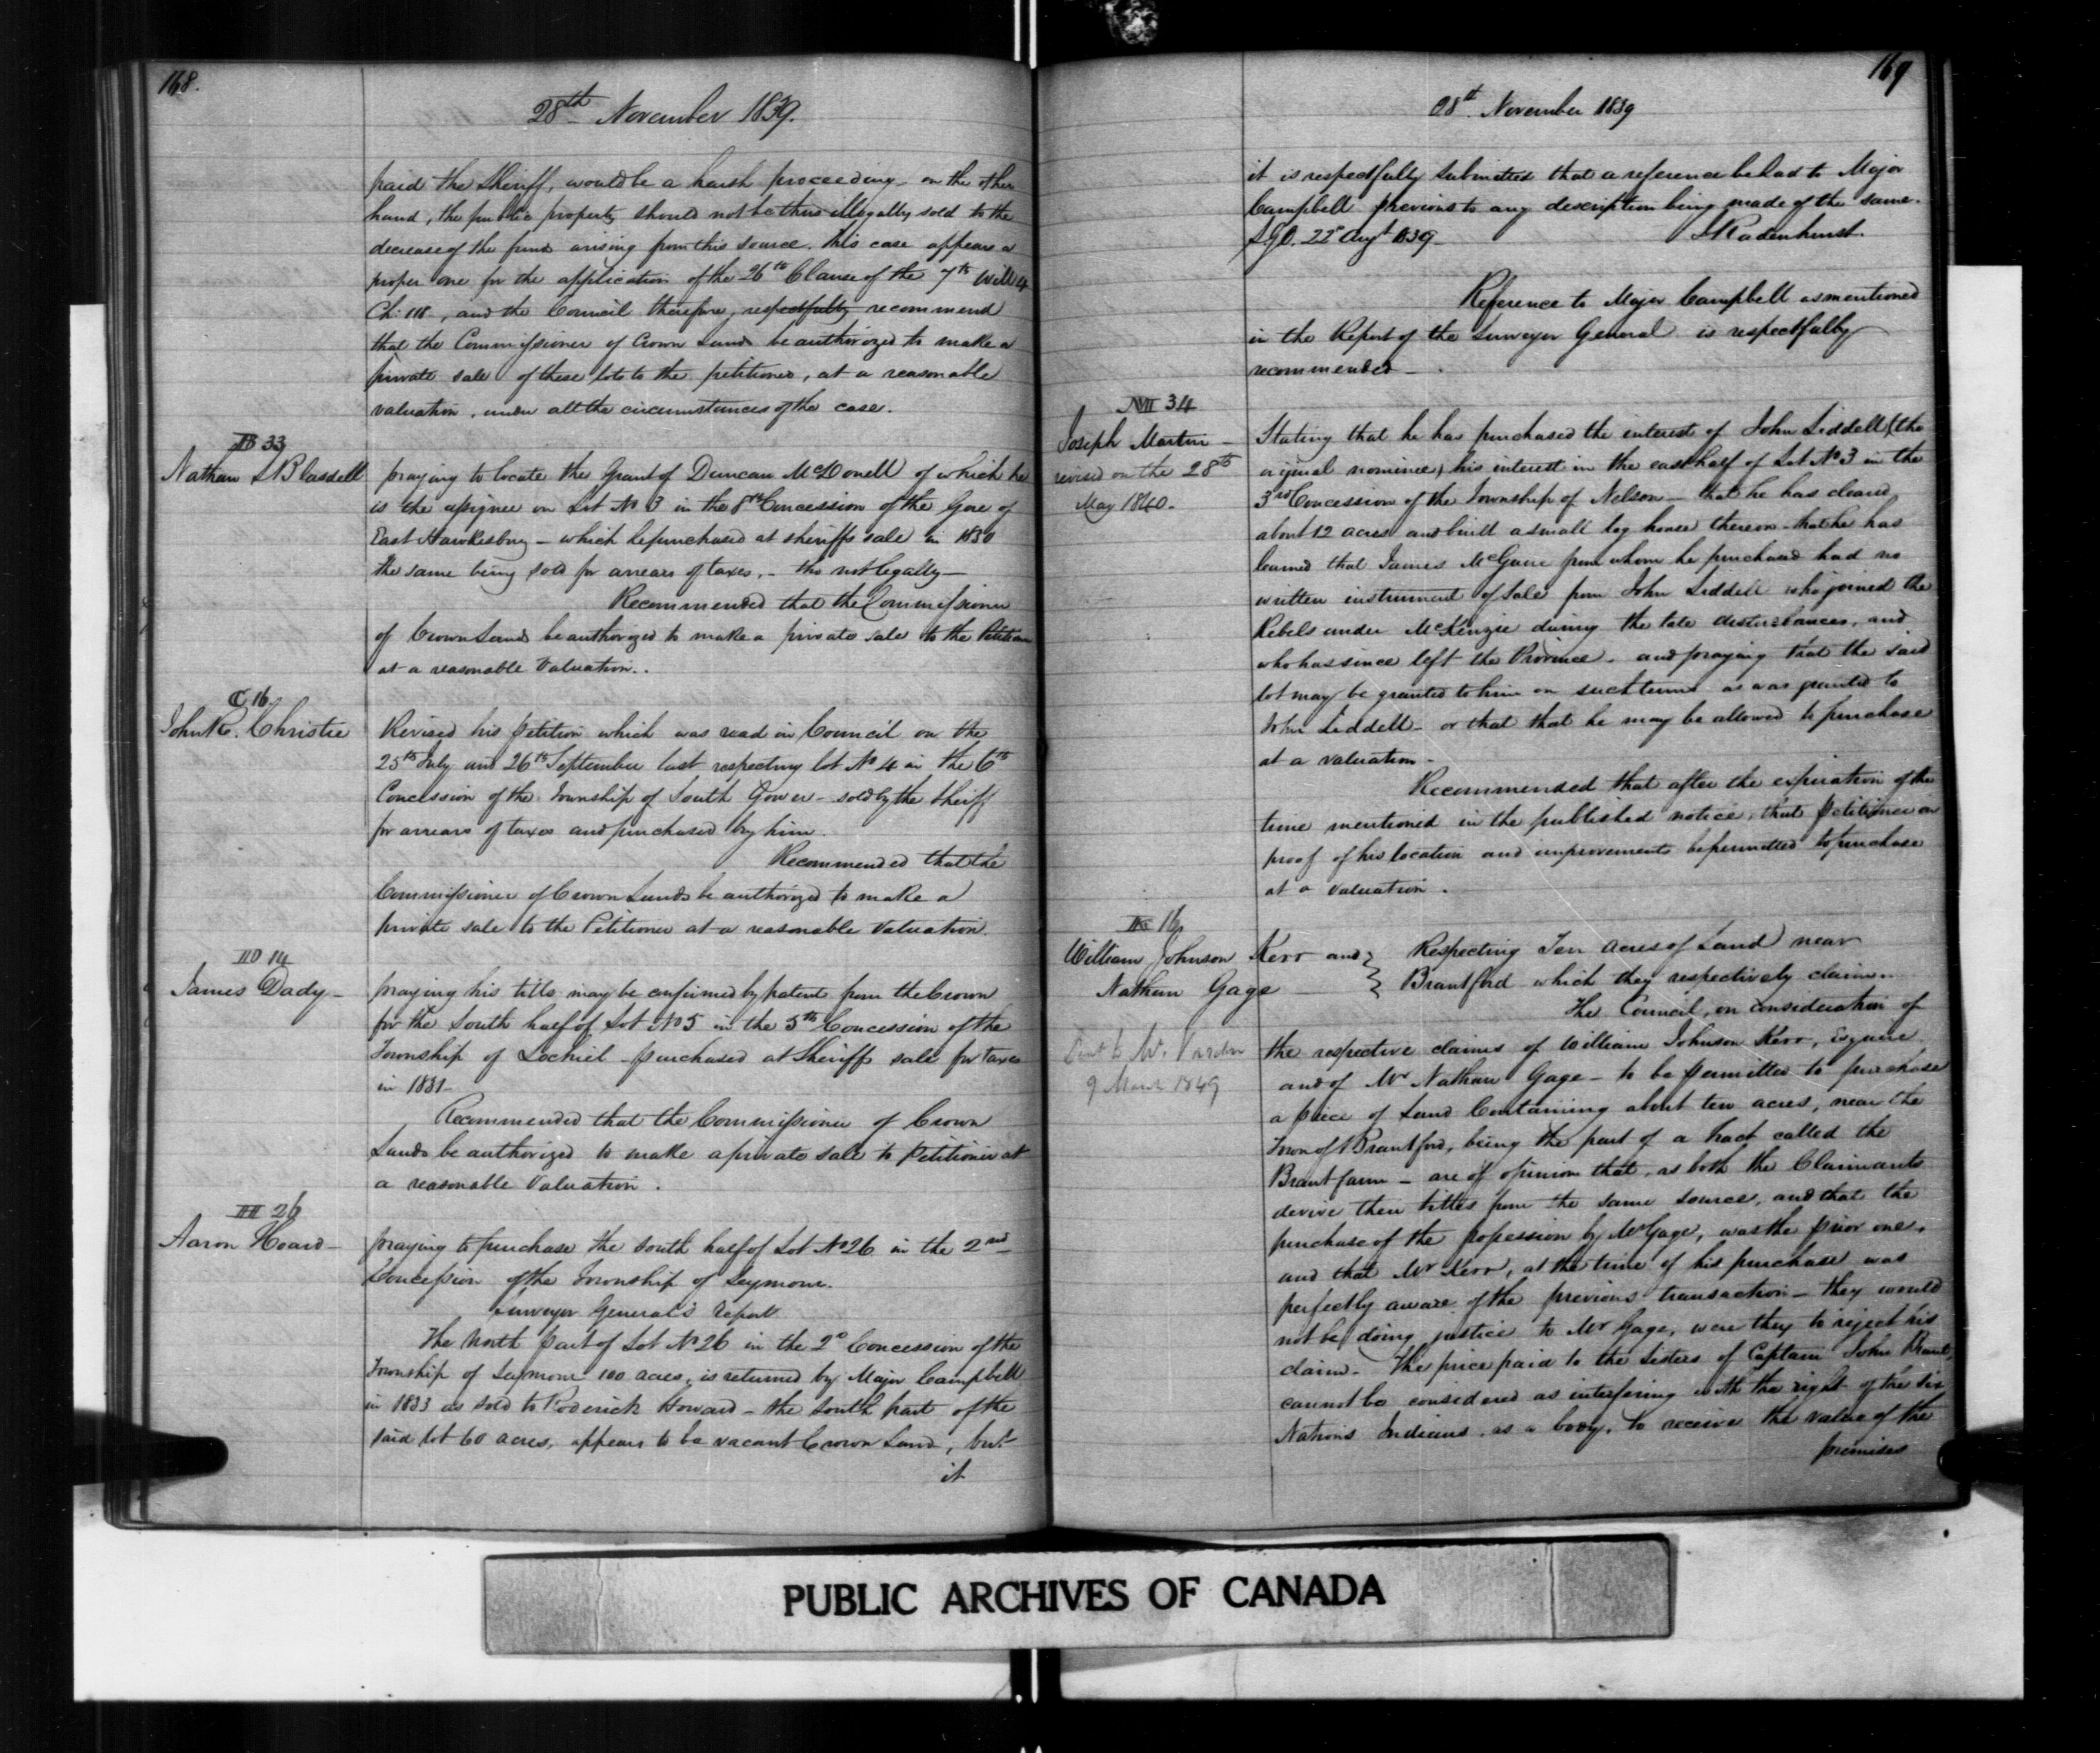 168.
28th November 1839.
paid the Sheriff, would be a harsh proceeding - on the other
hand, the public property should not be thus illegally sold to the
decrease of the fund arising from this source. This case appears a
proper one for the application of the 26th Clause of the 7th Will 4
Ch: 118, and the Council therefore, respectfully recommend
that the Commissioner of Crown Lands be authorized to make a
private sale of these lots to the petitioner, at a reasonable
valuation, under all the circumstances of the case.
B 33
Nathan S Blasdell praying to locate the Grant of Duncan McDonell of which he
is the assignee on Lot No 3 in the 8th Concession of the Gore of
East Hawkesbury - which he purchased at sheriffs sale in 1830
the same being sold for arrears of taxes, - tho not legally -
Recommended that the Commissioner
of Crown Lands be authorized to make a private sale to the Petitioner
at a reasonable Valuation.
C 16
John R. Christie Revised his petition which was read in Council on the
25th July and 26th September last respecting lot No 4 in the 6th
Concession of the Township of South Gower - sold by the Sheriff
for arrears of taxes and purchased by him.
Recommended that the
Commissioner of Crown Lands be authorized to make a
private sale to the Petitioner at a reasonable Valuation.
D 14
James Dady - praying his title may be confirmed by patent from the Crown
for the South half of Lot No 5 in the 5th Concession of the
Township of Lochiel - purchased at Sheriffs sale for taxes
in 1831 -
Recommended that the Commissioner of Crown
Lands be authorized to make a private sale to Petitioner at
a reasonable Valuation.
H 26
Aaron Hoard - praying to purchase the South half of Lot No 26 in the 2nd
Concession of the Township of Seymour.
Surveyor General's Report
The North part of Lot No 26 in the 2d Concession of the
Township of Seymour 100 acres, is returned by Major Campbell
in 1833 as sold to Roderick Howard - the South part of the
said lot 60 acres, appears to be vacant Crown Land, but
it
169
28th November 1839
it is respectfully submitted that a reference be had to Major
Campbell previous to any description being made of the same.
S.G.O. 22d Augt 1839 J Radenhurst.
Reference to Major Campbell as mentioned
in the Report of the Surveyor General is respectfully
recommended -
M 34
Joseph Martin - Stating that he has purchased the interest of John Liddell (the
revised on the 28th original nominee) his interest in the east half of Lot No 3 in the
May 1840. 3rd Concession of the Township of Nelson - that he has cleared
about 12 acres and built a small log house thereon - that he has
learned that James McGuire from whom he purchased had no
written instrument of Sale from John Liddell who joined the
Rebels under McKenzie during the late disturbances, and
who has since left the Province - and praying that the said
lot may be granted to him on such terms as was granted to
John Liddell - or that that he may be allowed to purchase
at a valuation -
Recommended that after the expiration of the
time mentioned in the published notice, that Petitioner on
proof of his location and improvements be permitted to purchase
at a valuation.
K 16
William Johnson Kerr and } Respecting Ten acres of Land near
Nathan Gage } Brantford which they respectively claim.
The Council, on consideration of
the respective claims of William Johnson Kerr, Esquire
Sent to Mr. and of Mr Nathan Gage - to be permitted to purchase
9 March 1849 a piece of Land Containing about ten acres, near the
Town of Brantford, being the part of a tract called the
Brant farm - are of opinion that, as both the Claimants
derive their titles from the same source, and that the
purchase of the possession by Mr Gage, was the prior one,
and that Mr Kerr, at the time of his purchase was
perfectly aware of the previous transaction - they would
not be doing justice to Mr Gage, were they to reject his
claim. - The price paid to the Sisters of Captain John Brant,
cannot be considered as interfering with the right of the Six
Nations Indians, as a body, to receive the value of the
premises
PUBLIC ARCHIVES OF CANADA